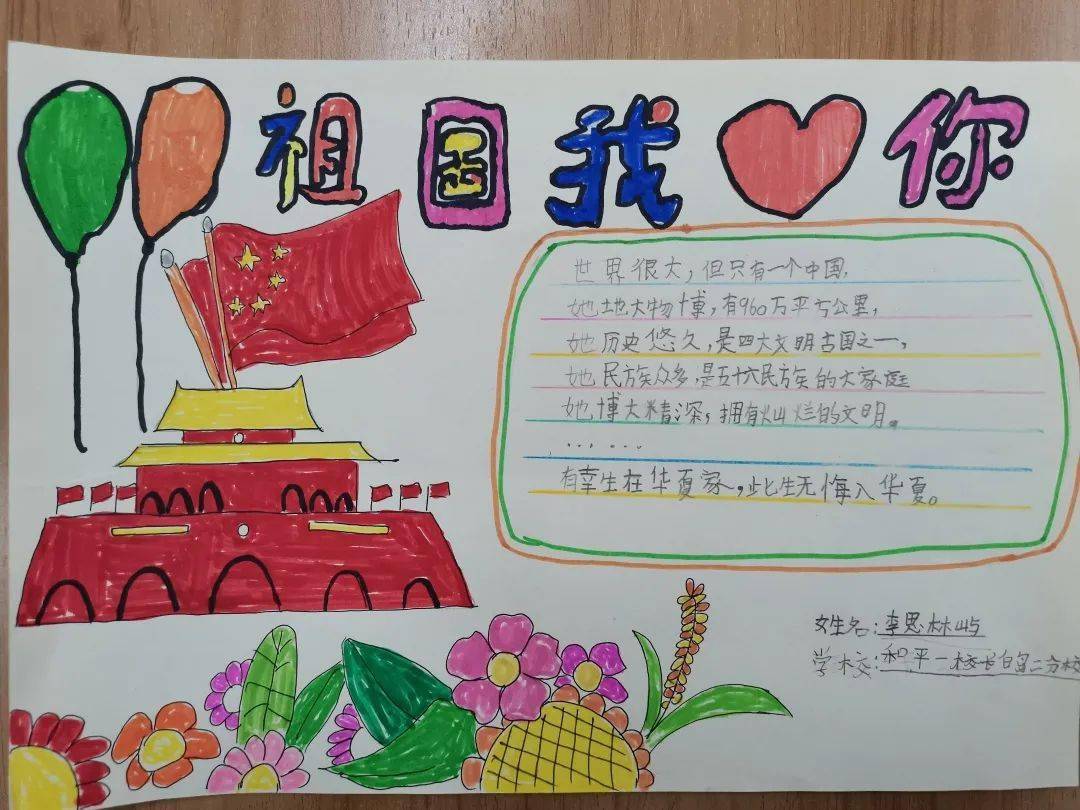 祖国我你
世界很大，但只有一个中国，
她地大物博，有960万平方公里，
她历史悠久，是四大文明古国之一，
她民族众多，是五十六民族的大家庭
她博大精深，拥有灿烂的文明。
... ...
有幸生在华夏家，此生无悔入华夏。
姓名：李思林屿
学校：和平一校长白岛二分校